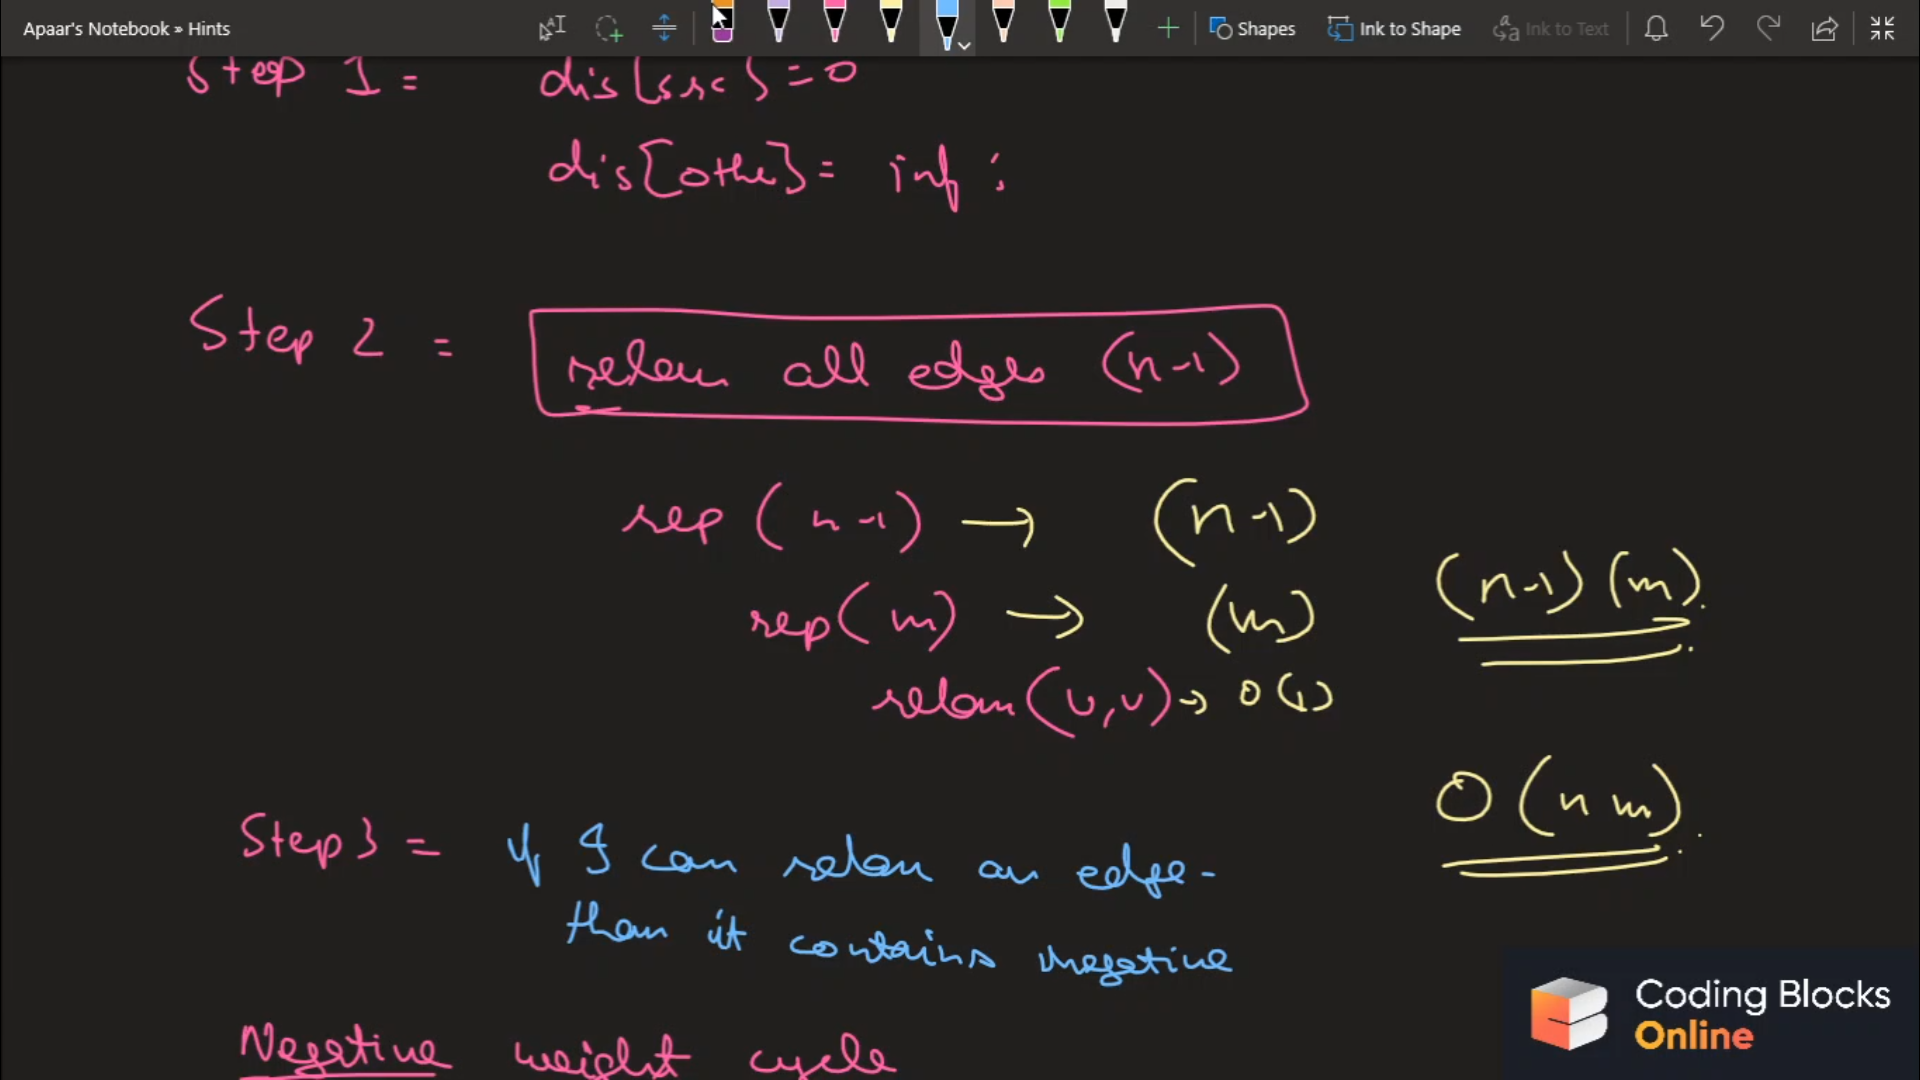 Apaar's Notebook » Hints
Shapes Ink to Shape Ink to Text
Step 1 = dis[src] = 0
dis[othe] = inf ;
Step 2 = relax all edges (n-1)
rep (n-1) → (n-1)
rep(m) → (m)
(n-1) (m).
relax(u,v) → O(1)
O(nm).
Step 3 = if I can relax an edge-
than it contains negative
Negative weight cycle
Coding Blocks
Online